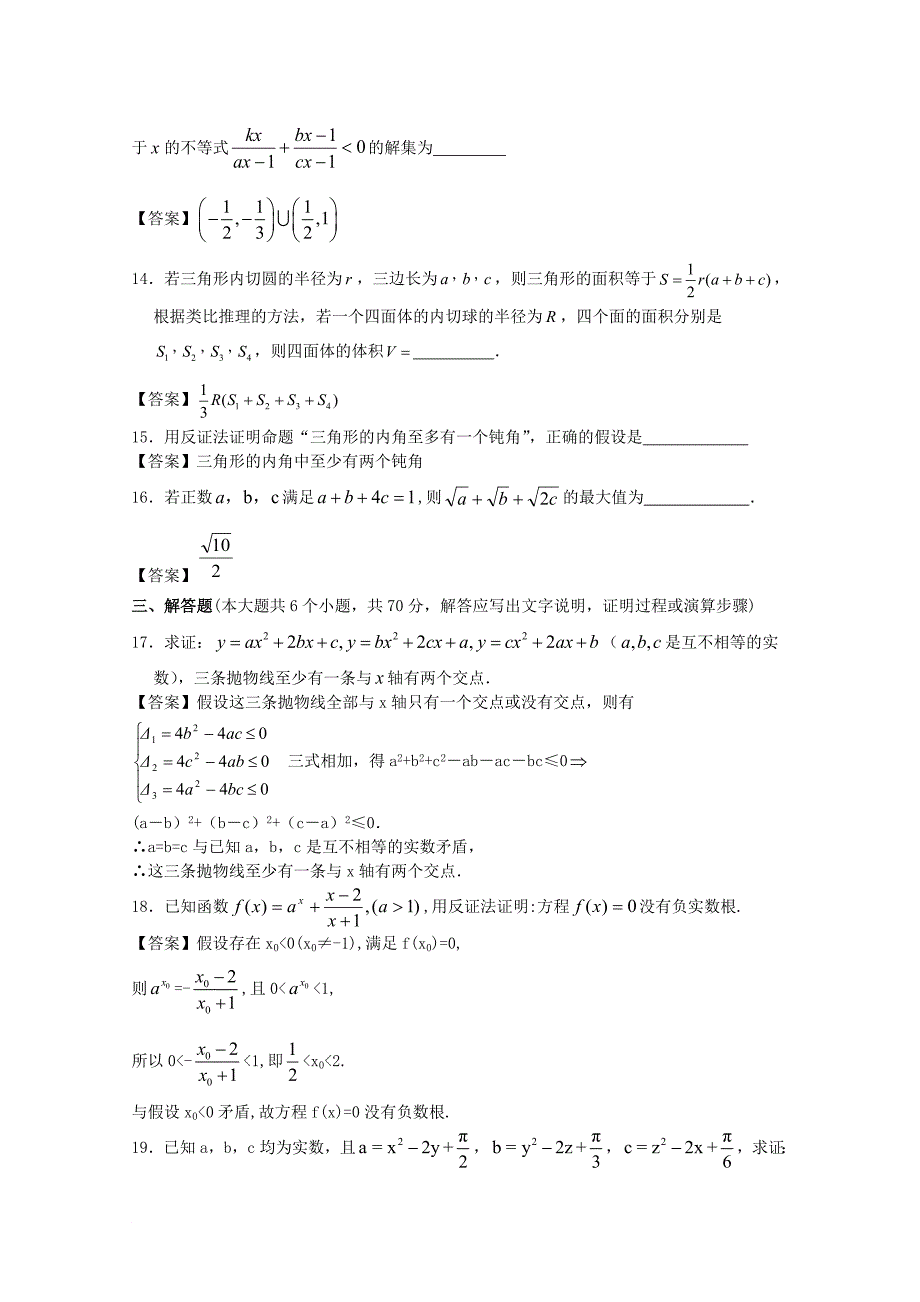 于 x 的不等式 kx/(ax−1) + (bx−1)/(cx−1) < 0 的解集为_________
【答案】(−1/2, −1/3)∪(1/2, 1)
14．若三角形内切圆的半径为 r，三边长为 a，b，c，则三角形的面积等于 S = 1/2 r(a+b+c)，
根据类比推理的方法，若一个四面体的内切球的半径为 R，四个面的面积分别是
S₁，S₂，S₃，S₄，则四面体的体积 V = __________．
【答案】1/3 R(S₁+S₂+S₃+S₄)
15．用反证法证明命题“三角形的内角至多有一个钝角”，正确的假设是_____________
【答案】三角形的内角中至少有两个钝角
16．若正数 a，b，c 满足 a+b+4c=1,则 √a+√b+√(2c) 的最大值为_____________．
【答案】√10/2
三、解答题(本大题共6个小题，共70分，解答应写出文字说明，证明过程或演算步骤)
17．求证：y=ax²+2bx+c, y=bx²+2cx+a, y=cx²+2ax+b（a,b,c 是互不相等的实
数），三条抛物线至少有一条与 x 轴有两个交点．
【答案】假设这三条抛物线全部与x轴只有一个交点或没有交点，则有
Δ₁=4b²−4ac≤0
Δ₂=4c²−4ab≤0 三式相加，得a²+b²+c²－ab－ac－bc≤0⇒
Δ₃=4a²−4bc≤0
(a－b）²+（b－c）²+（c－a）²≤0．
∴a=b=c与已知a，b，c是互不相等的实数矛盾，
∴这三条抛物线至少有一条与x轴有两个交点．
18．已知函数 f(x)=aˣ+(x−2)/(x+1),(a>1),用反证法证明:方程 f(x)=0 没有负实数根．
【答案】假设存在x₀<0(x₀≠-1),满足f(x₀)=0,
则 a^x₀ =-(x₀−2)/(x₀+1),且0< a^x₀ <1,
所以0<-(x₀−2)/(x₀+1)<1,即1/2<x₀<2．
与假设x₀<0矛盾,故方程f(x)=0没有负数根．
19．已知a，b，c均为实数，且 a=x²−2y+π/2，b=y²−2z+π/3，c=z²−2x+π/6，求证: